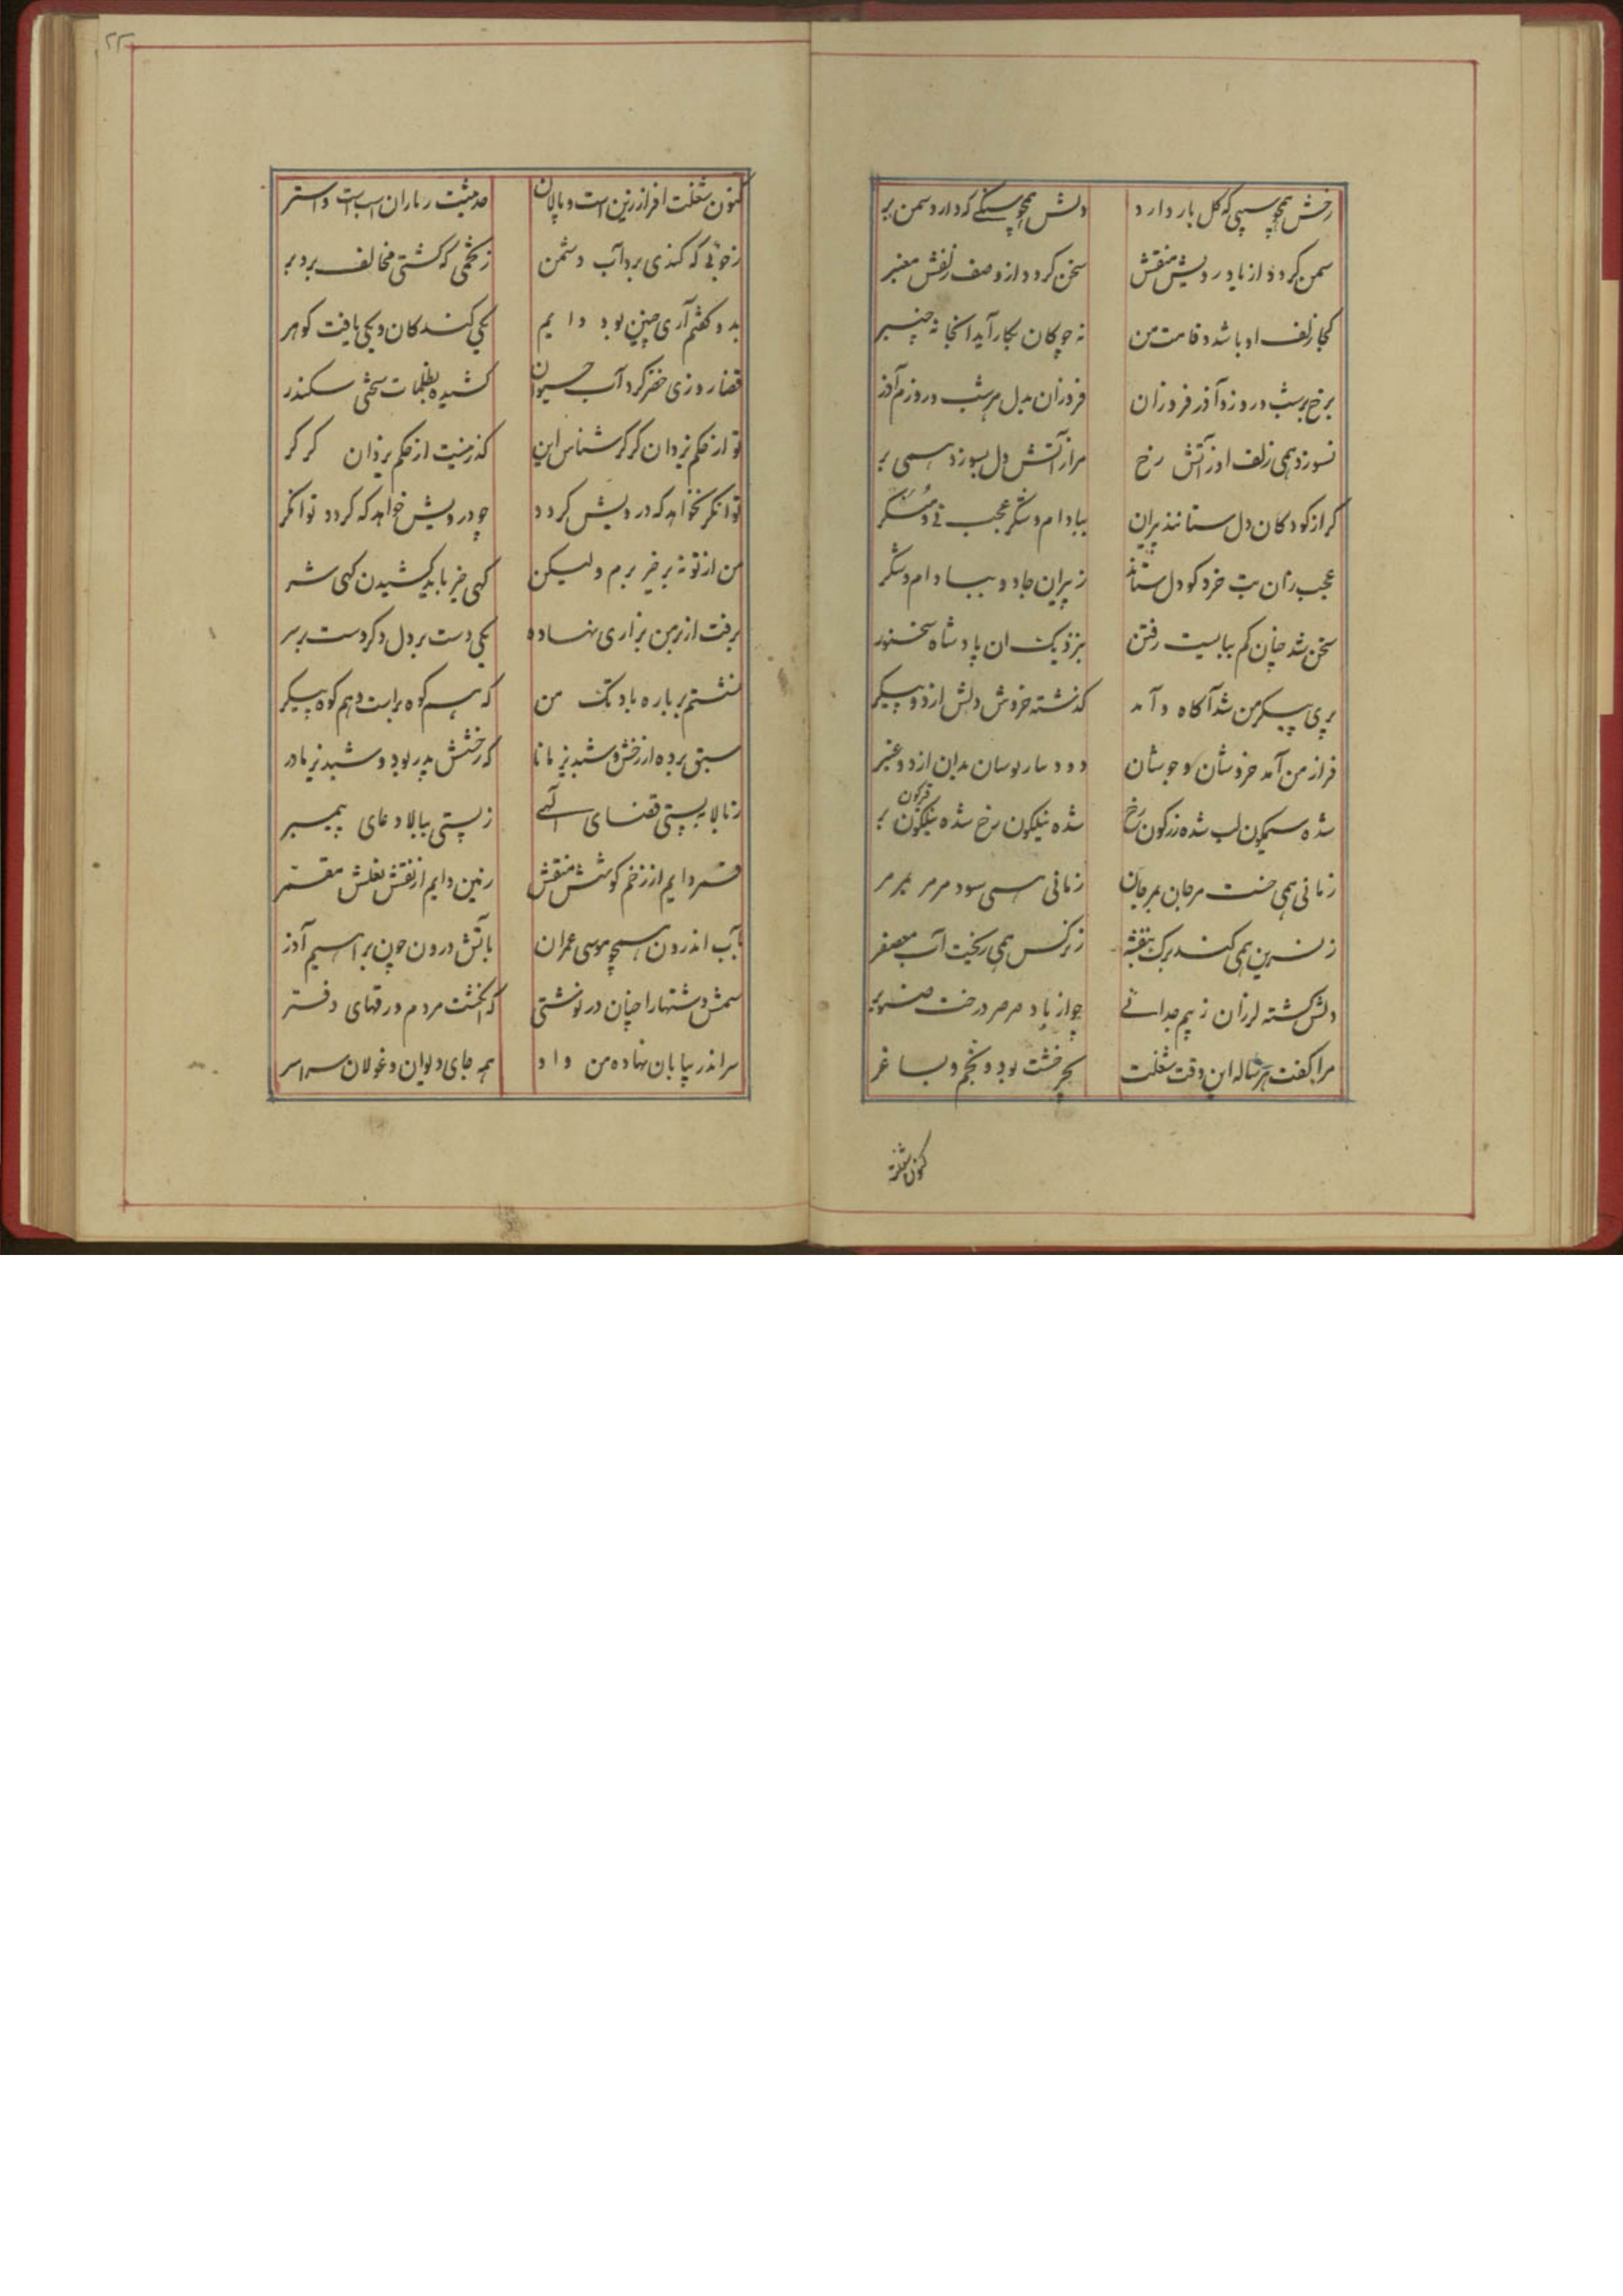 رخش همچو سیبی که گل بار دارد دلش همچو سنگی که دارد سمن بر
سمن گردد از یاد رویش منقش سخن گردد از وصف زلفش معنبر
کجا زلف او باشد و قامت من نه چوکان بکار آید آنجا نه چنبر
برخ بر شب و روز و آذر فروزان فروزان بدل بر شب و روزم آذر
نسوزد همی زلف او ز آتش رخ مرا ز آتش دل بسوزد همی بر
گر از کودکان دل ستانند پیران ببادام و شکر عجب نی و منکر
عجب زان بت خرد کو دل ستاند ز پیران جادو ببادام و شکر
سخن شد چنان کم ببایست رفتن بنزدیک ان پادشاه سخنور
پری پیکر من شد آگاه و آمد گذشته خروش دلش از دو پیکر
فراز من آمد خروشان و جوشان دو دو
شده سیمگون لب شده زرگون رخ شده نیلگون رخ شده نیلگون بر
قیرگون
زمانی همی خست مرجان بمرجان زمانی همی سود مرمر بمرمر
ز نسرین همی کند برک بنفشه ز نرگس همی ریخت آب معصفر
دلش گشته لرزان ز بیم جدائی چو از باد صرصر درخت صنوبر
مرا گفت هر ساله این وقت شغلت بجر خشت بود و بخم و بساغر
کنون شغلت
۲۲
کنون شغلت افراز زین است و پالان حدیثت ز یاران اسب است و استر
ز خوئی که کندی برد آب دشمن ز خمی که کشتی مخالف برد بر
بدو گفتم آری چنین بود دایم یکی کند کان و یکی یافت گوهر
قضا روزی خضر کرد آب حیوان کشیده بظلمات سختی سکندر
تو از حکم یزدان گرگر شناس این گذر نیست از حکم یزدان گرگر
توانگر نخواهد که درویش گردد چو درویش خواهد که گردد توانگر
من از تو نه بر خیر برم ولیکن گهی خیر باید کشیدن گهی شر
برفت از بر من بزاری نهاده یکی دست بر دل دگر دست بر سر
نشستم بر باره بادتگ من که هم کوه برّاست و هم کوه پیکر
سبق برده از رخش و شبدیز مانا که رخشش پدر بود و شبدیز مادر
ز بالا بپستی قضای الهی ز پستی ببالا دعای پیمبر
قمر دایم از زخم گوشش منقش زمین دایم از نقش نعلش مقمر
بآب اندرون همچو موسی عمران بآتش درون چون براهیم آذر
سمش دشتها را چنان در نوشتی که انگشت مردم ورقهای دفتر
سر اندر بیابان نهاده من و او همه جای دیوان و غولان سراسر